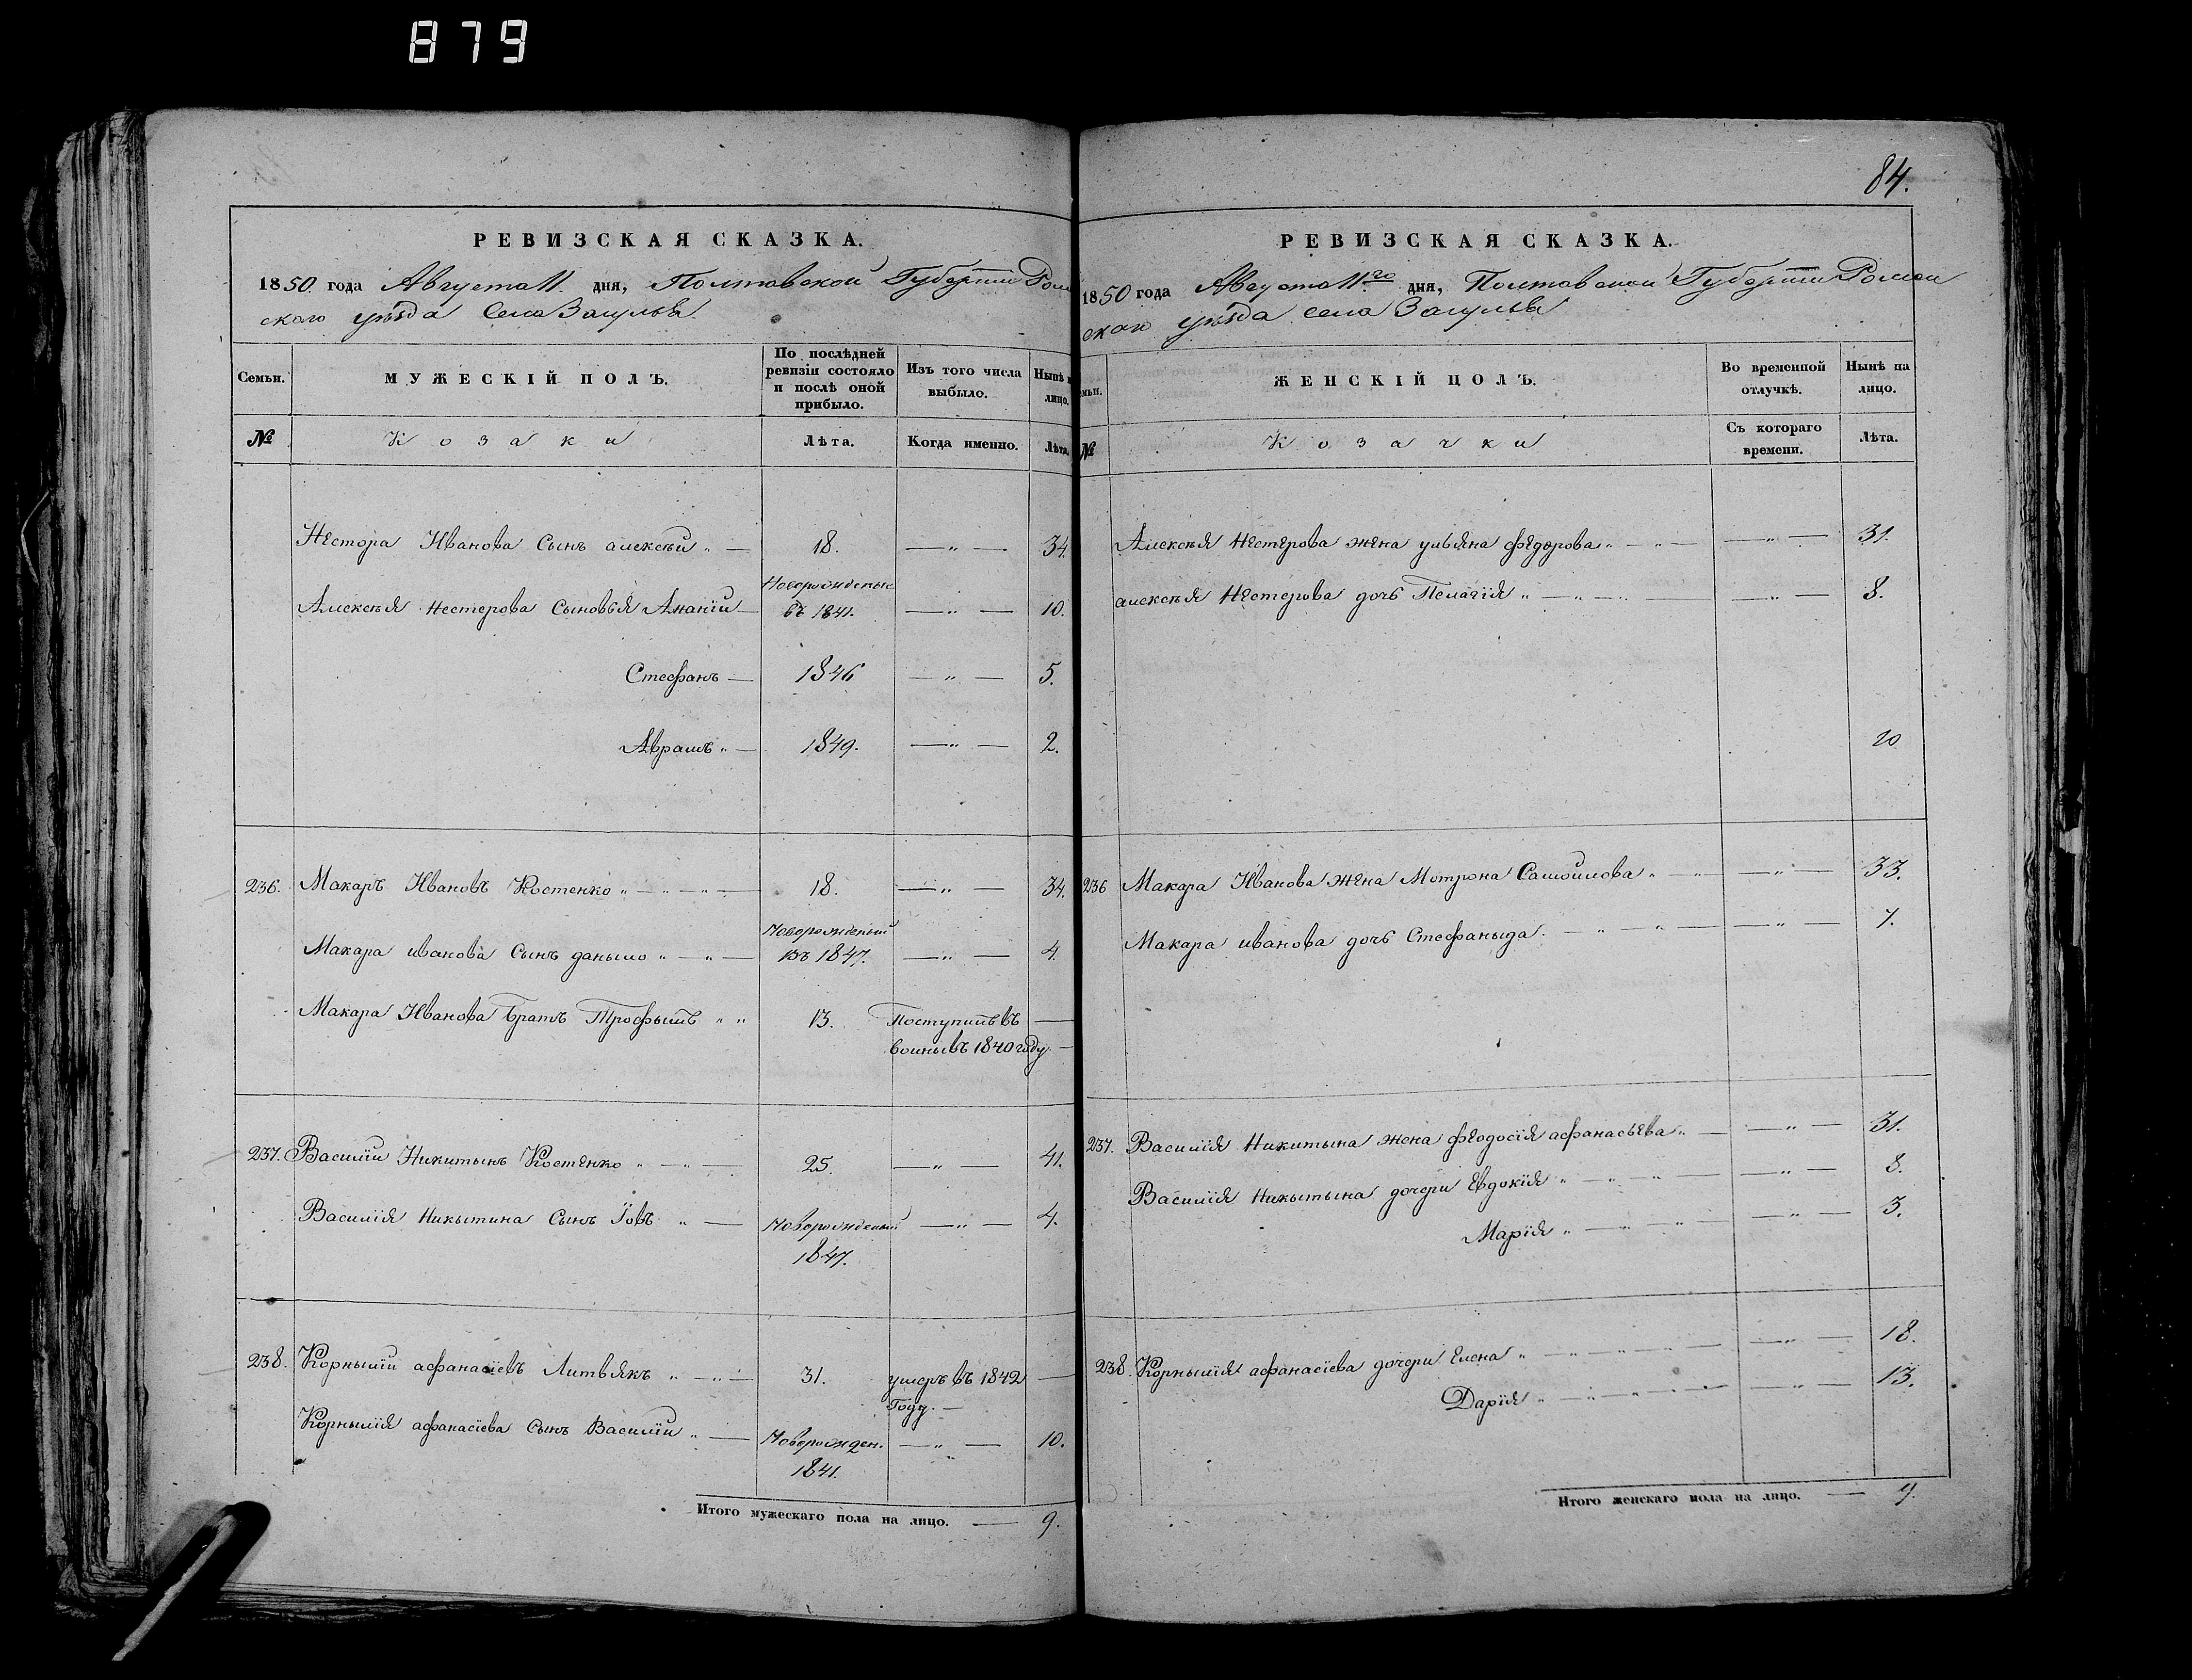 879
РЕВИЗСКАЯ СКАЗКА.
1850 года Августа 11. дня, Полтавской Губернии Ромен
ского уѣзда Села Засулья
Семьи.
МУЖЕСКІЙ ПОЛЪ.
По послѣдней ревизіи состояло и послѣ оной прибыло.
Изъ того числа выбыло.
Нынѣ н лицо.
№
Козаки
Лѣта.
Когда именно.
Лѣта.
Нестора Иванова Сынъ алексѣй „ — 18. —„— 34.
Алексѣя нестерова Сыновья Ананій — Новорожденые въ 1841. —„— 10.
Стефанъ — 1846 —„— 5.
Аврамъ „ — 1849. —„— 2.
236. Макаръ Ивановъ Костенко „ — „ — „ — 18. —„— 34.
Макара иванова Сынъ даныло „ — „ — Новорожденый въ 1847. —„— 4.
Макара Иванова братъ Трофымъ „ „ 13. Поступилъ въ —
воины въ 1840 году. —
237. Василій Никитынъ Костенко „ — „ — 25. —„— 41.
Василія Никытина Сынъ Іовъ „ — Новорожденый —„— 4.
1847.
238. Корнылій афанасіевъ Литвякъ „ — „ — 31. умеръ въ 1842 —
Году. —
Корнылія афанасіева Сынъ Василій „ — Новорожден. —„— 10.
1841.
Итого мужескаго пола на лицо. — 9.
84.
РЕВИЗСКАЯ СКАЗКА.
1850 года Августа 11го дня, Полтавской Губернии Ромен
ского уѣзда села Засулья
емьи.
ЖЕНСКІЙ ПОЛЪ.
Во временной отлучкѣ.
Нынѣ на лицо.
№
Козачки
Съ котораго времени.
Лѣта.
Алексѣя Нестерова жена ульяна федорова „ — „ — —„— 31.
алексѣя Нестерова дочь Пелагія „ — „ — „ —„— 8.
20
236 Макара Иванова жена Мотрона Самойлова „ — „ — —„— 33.
Макара иванова дочь Стефаныда. — „ — „ — —„— 7.
237. Василія Никитына жена феодосія афанасьева „ — —„— 31.
Василія Никытына дочери Евдокія „ — „ — „ — —„— 8.
Марія „ — „ — „ — —„— 3.
238. Корнылія афанасіева дочери Елена „ — „ — „ — —„— 18.
Дарія „ — „ — „ — —„— 13.
Итого женскаго пола на лицо. — 9.